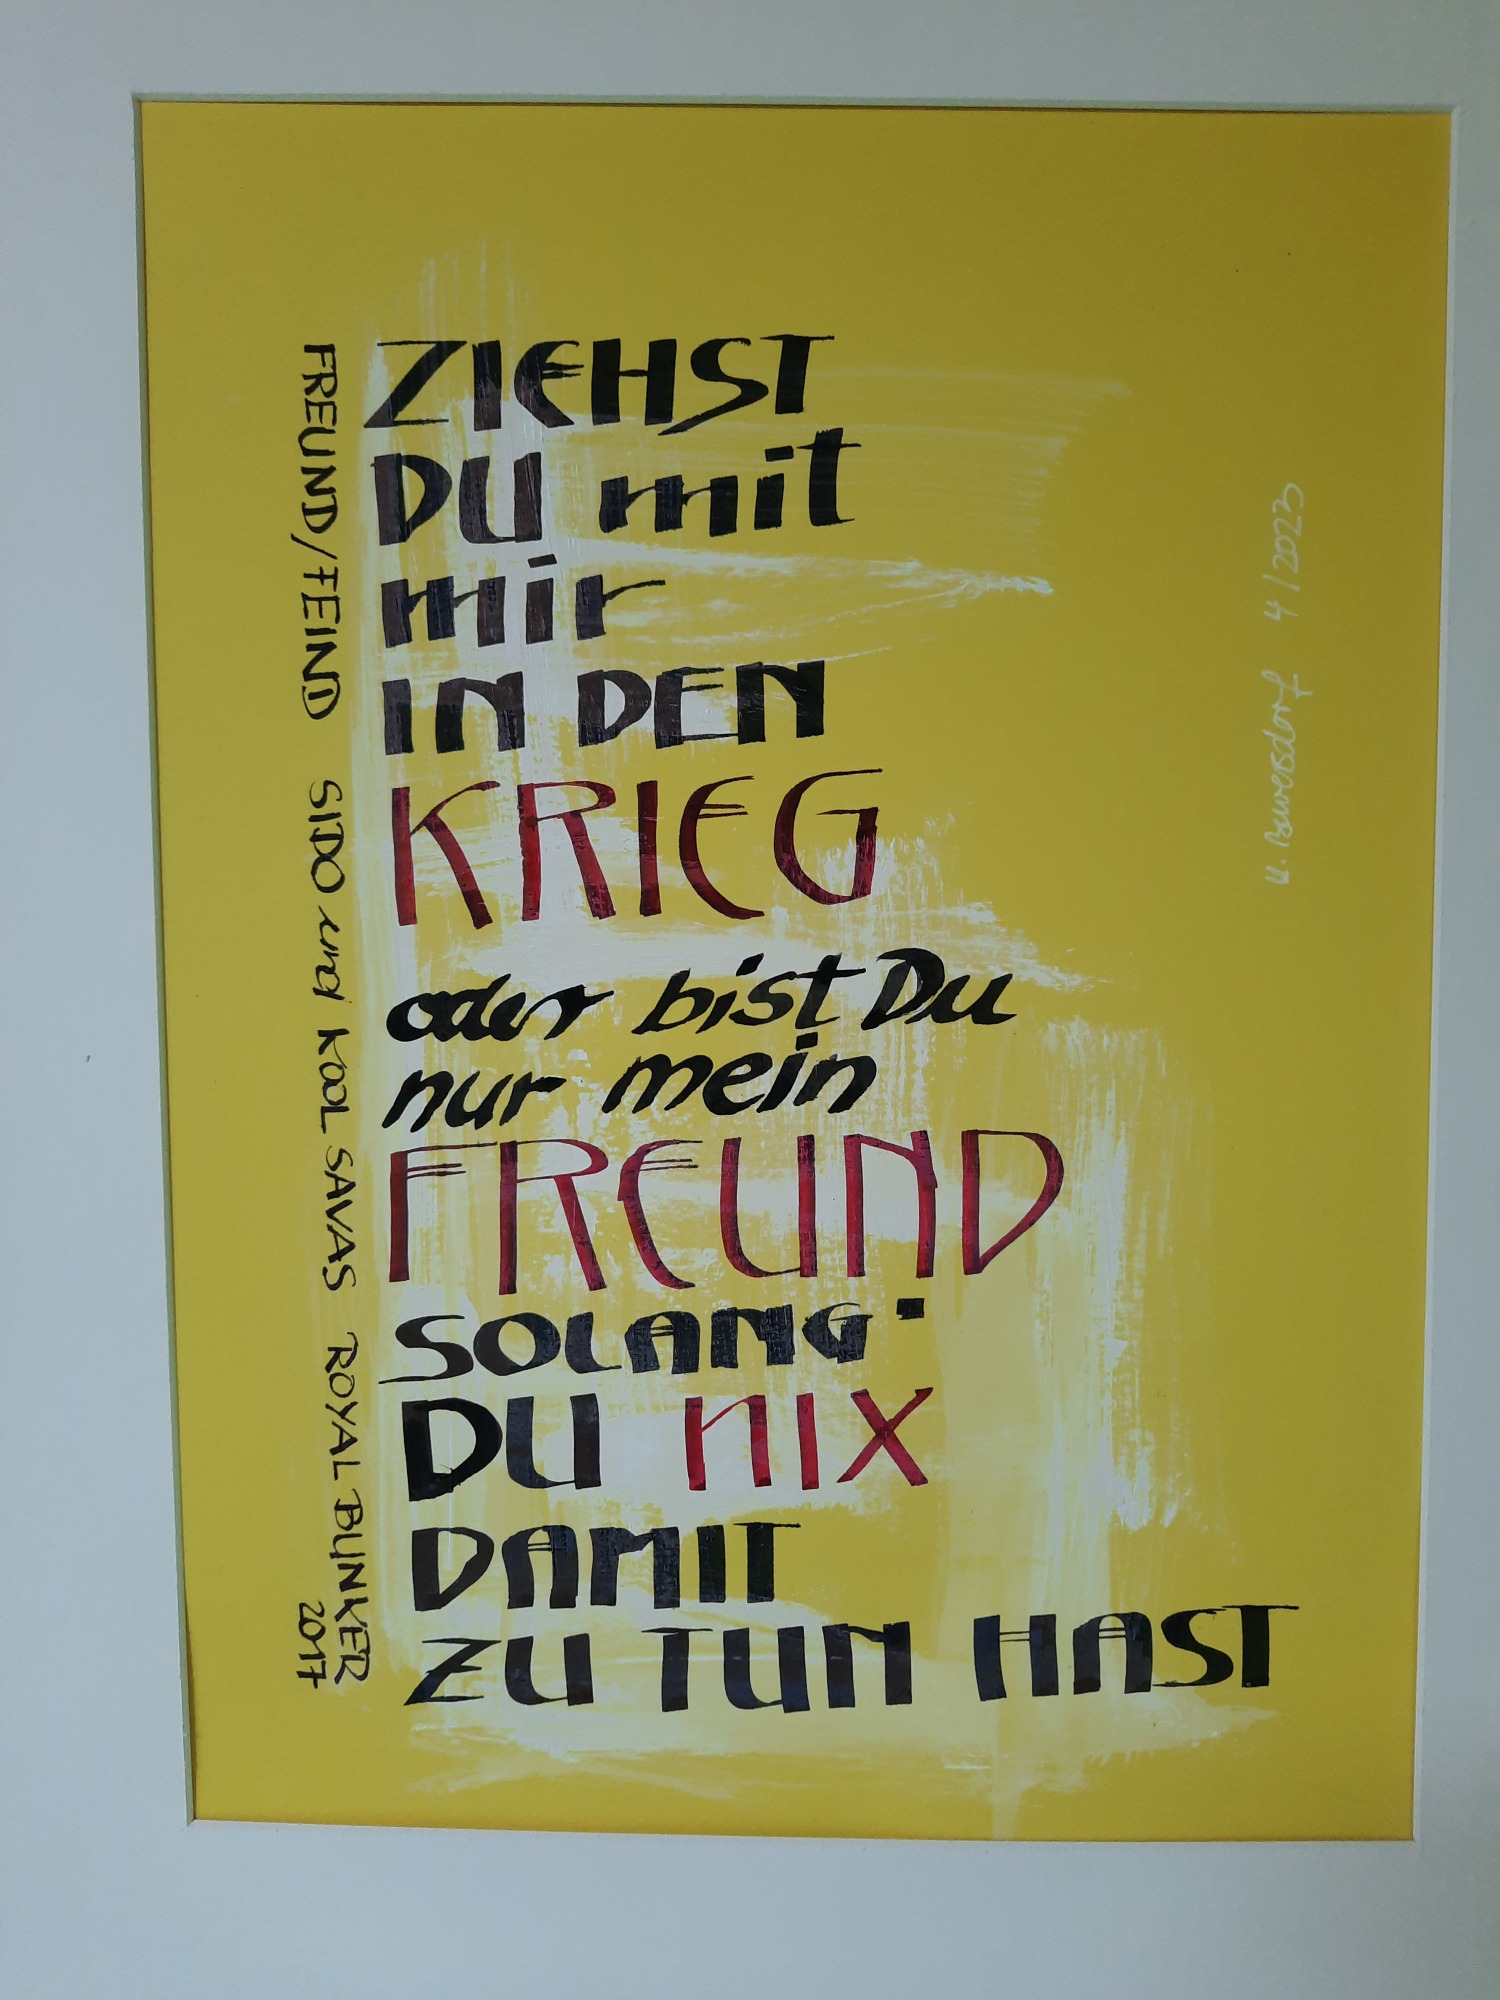 ZIEHST
DU mit
mir
IN DEN
KRIEG
oder bist Du
nur mein
FREUND
SOLANG'
DU NIX
DAMIT
ZU TUN HAST
FREUND/FEIND SIDO und KOOL SAVAS ROYAL BUNKER
2017
4/2023